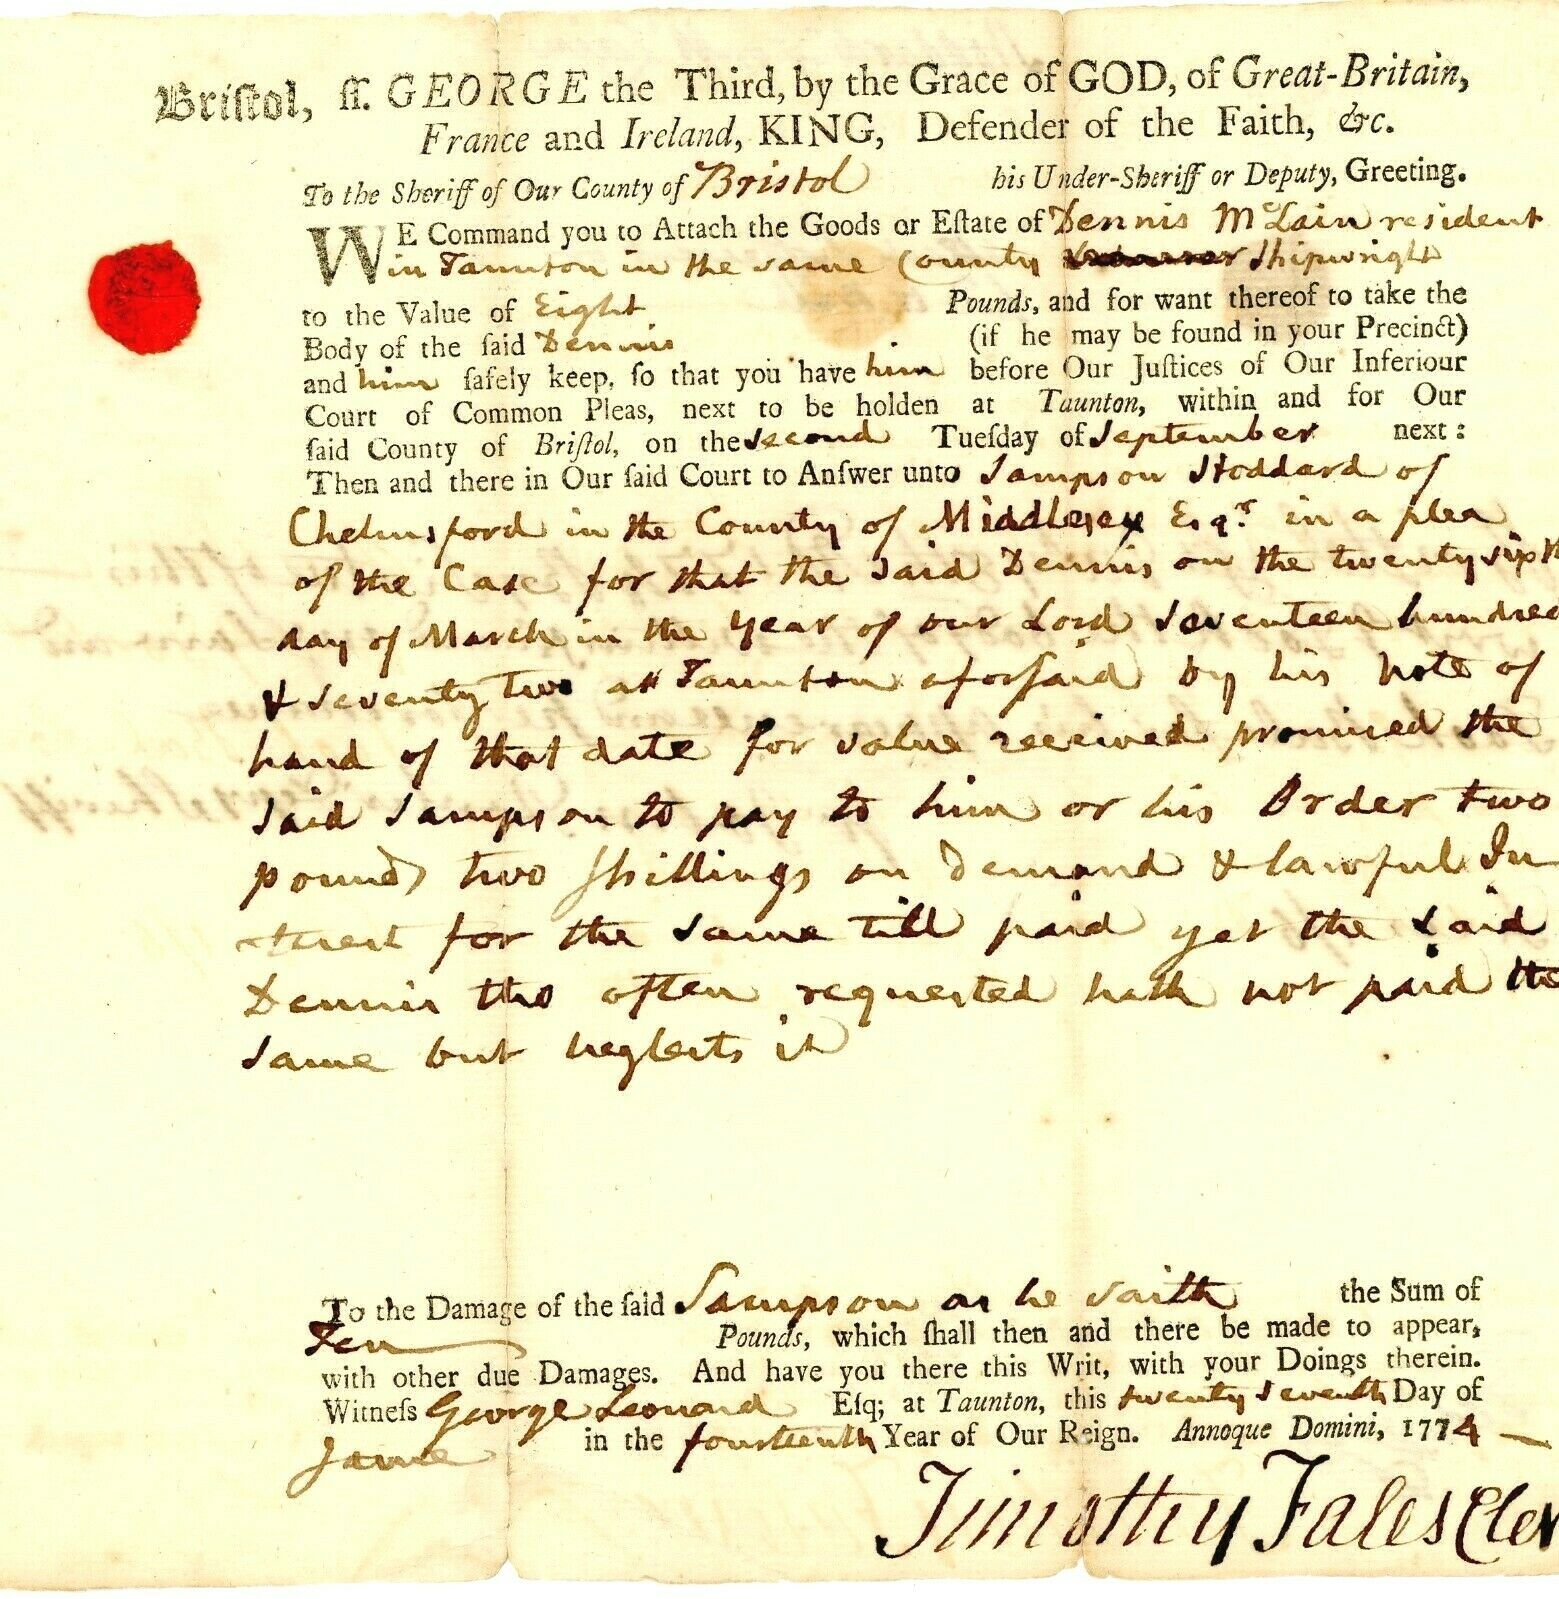 Briſtol, ſſ. GEORGE the Third, by the Grace of GOD, of Great-Britain,
France and Ireland, KING, Defender of the Faith, &c.
To the Sheriff of Our County of Bristol his Under-Sheriff or Deputy, Greeting.
WE Command you to Attach the Goods or Eſtate of Dennis McLain resident
in Taunton in the same County Shipwright
to the Value of Eight Pounds, and for want thereof to take the
Body of the ſaid Dennis (if he may be found in your Precinct)
and him ſafely keep, ſo that you have him before Our Juſtices of Our Inferiour
Court of Common Pleas, next to be holden at Taunton, within and for Our
ſaid County of Briſtol, on the second Tueſday of September next:
Then and there in Our ſaid Court to Anſwer unto Sampson Stoddard of
Chelmsford in the County of Middlesex Esqr. in a plea
of the Case for that the said Dennis on the twenty sixth
day of March in the year of our Lord seventeen hundred
& seventy two at Taunton aforsaid by his note of
hand of that date for value received promised the
said Sampson to pay to him or his Order two
pounds two shillings on Demand & lawful In
terest for the same till paid yet the said
Dennis tho often requested hath not paid the
same but neglects it
To the Damage of the ſaid Sampson as he saith the Sum of
Ten Pounds, which ſhall then and there be made to appear,
with other due Damages. And have you there this Writ, with your Doings therein.
Witneſs George Leonard Eſq; at Taunton, this twenty seventh Day of
June in the fourteenth Year of Our Reign. Annoque Domini, 1774
Timothy Fales Cler